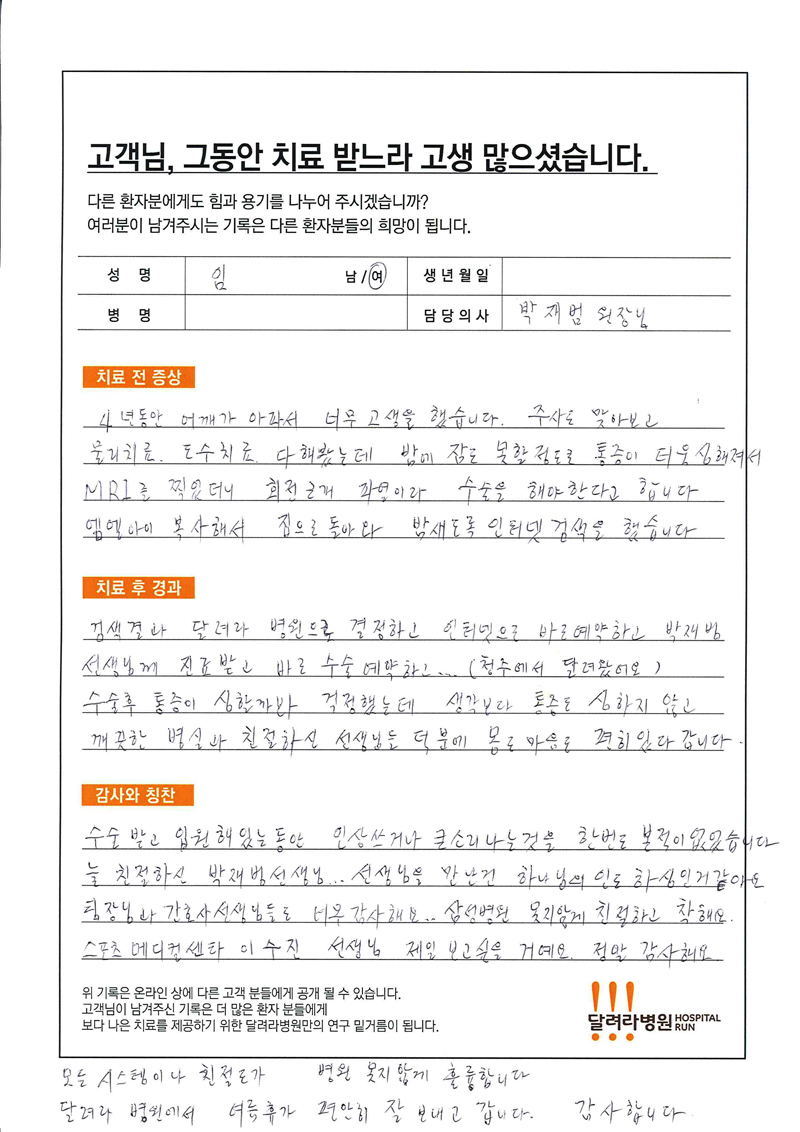 고객님, 그동안 치료 받느라 고생 많으셨습니다.
다른 환자분에게도 힘과 용기를 나누어 주시겠습니까?
여러분이 남겨주시는 기록은 다른 환자분들의 희망이 됩니다.
성 명 임 남 / 여 생년월일
병 명 담당의사 박재범 원장님
치료 전 증상
4년동안 어깨가 아파서 너무 고생을 했습니다. 주사도 맞아보고
물리치료. 도수치료. 다해봤는데 밤에 잠도 못할정도로 통증이 더욱심해져서
MRI를 찍었더니 회전근개 파열이라 수술을 해야한다고 합니다
엠엘아이 복사해서 집으로 돌아와 밤새도록 인터넷 검색을 했습니다
치료 후 경과
검색결과 달려라 병원으로 결정하고 인터넷으로 바로예약하고 박재범
선생님께 진료받고 바로 수술예약하고... (청주에서 달려왔어요)
수술후 통증이 심할까봐 걱정했는데 생각보다 통증도 심하지 않고
깨끗한 병실과 친절하신 선생님들 덕분에 몸도 마음도 편히있다 갑니다.
감사와 칭찬
수술 받고 입원해있는동안 인상쓰거나 큰소리나는것을 한번도 본적이없었습니다
늘 친절하신 박재범선생님... 선생님을 만난건 하나님의 인도하심인거같아요
팀장님과 간호사선생님들도 너무감사해요.. 삼성병원 못지않게 친절하고 착해요.
스포츠메디컬센타 이수진 선생님 제일 보고싶을 거예요. 정말 감사해요
위 기록은 온라인 상에 다른 고객 분들에게 공개 될 수 있습니다.
고객님이 남겨주신 기록은 더 많은 환자 분들에게
보다 나은 치료를 제공하기 위한 달려라병원만의 연구 밑거름이 됩니다.
달려라병원 HOSPITAL RUN
모든 시스템이나 친절도가 병원 못지않게 훌륭합니다
달려라 병원에서 여름휴가 편안히 잘 보내고 갑니다. 감사합니다